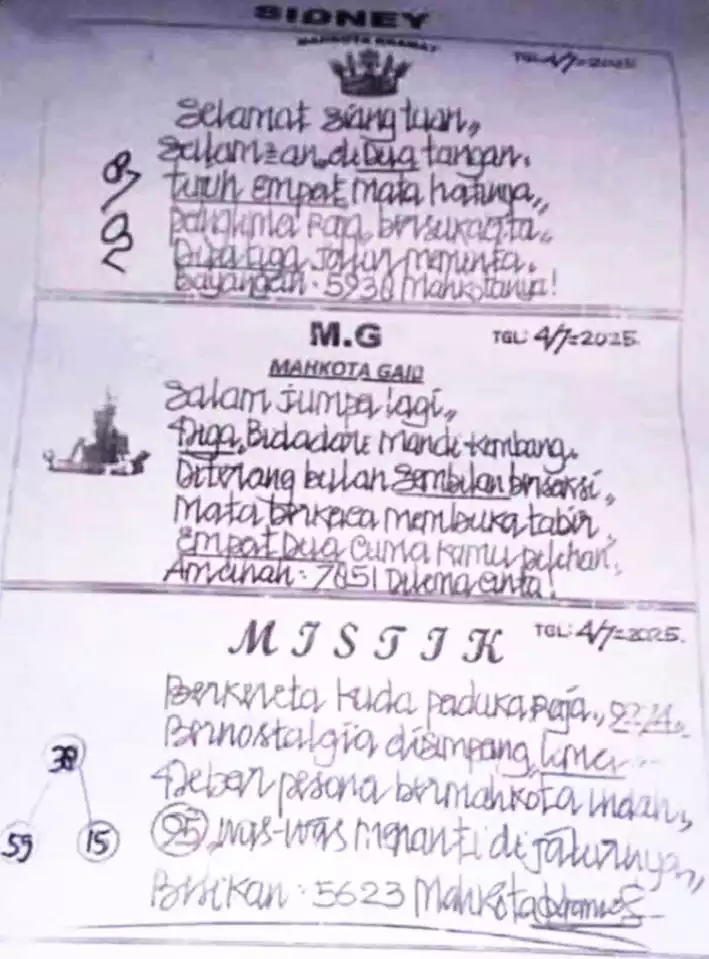 SIDNEY
MAHKOTA KRAMAT
TGL: 4/7=2025
Selamat siang tuan,,
Salamzan, di Dua tangan.
Tujuh empat mata hatinya,,
Panglima Raja bersukacita,
Bayangan: 5938 Mahkotanya!
M.G
TGL: 4/7=2025.
MAHKOTA GAIB
Salam jumpa lagi,,
Tiga, Bidadari mandi kembang.
Diterang bulan Sembilan bersaksi,,
Mata berkaca membuka tabir,
Empat Dua Cuma kamu pilihan,
Amanah: 7851 Dilema cinta!
MISTIK
TGL: 4/7=2025.
Berkereta kuda paduka Raja,,
Bernostalgia disimpang, Lima...
38
Debar pesona bermahkota indah,
59
15
25, was-was menanti di jalurnya,,
Bisikan: 5623 Mahkota